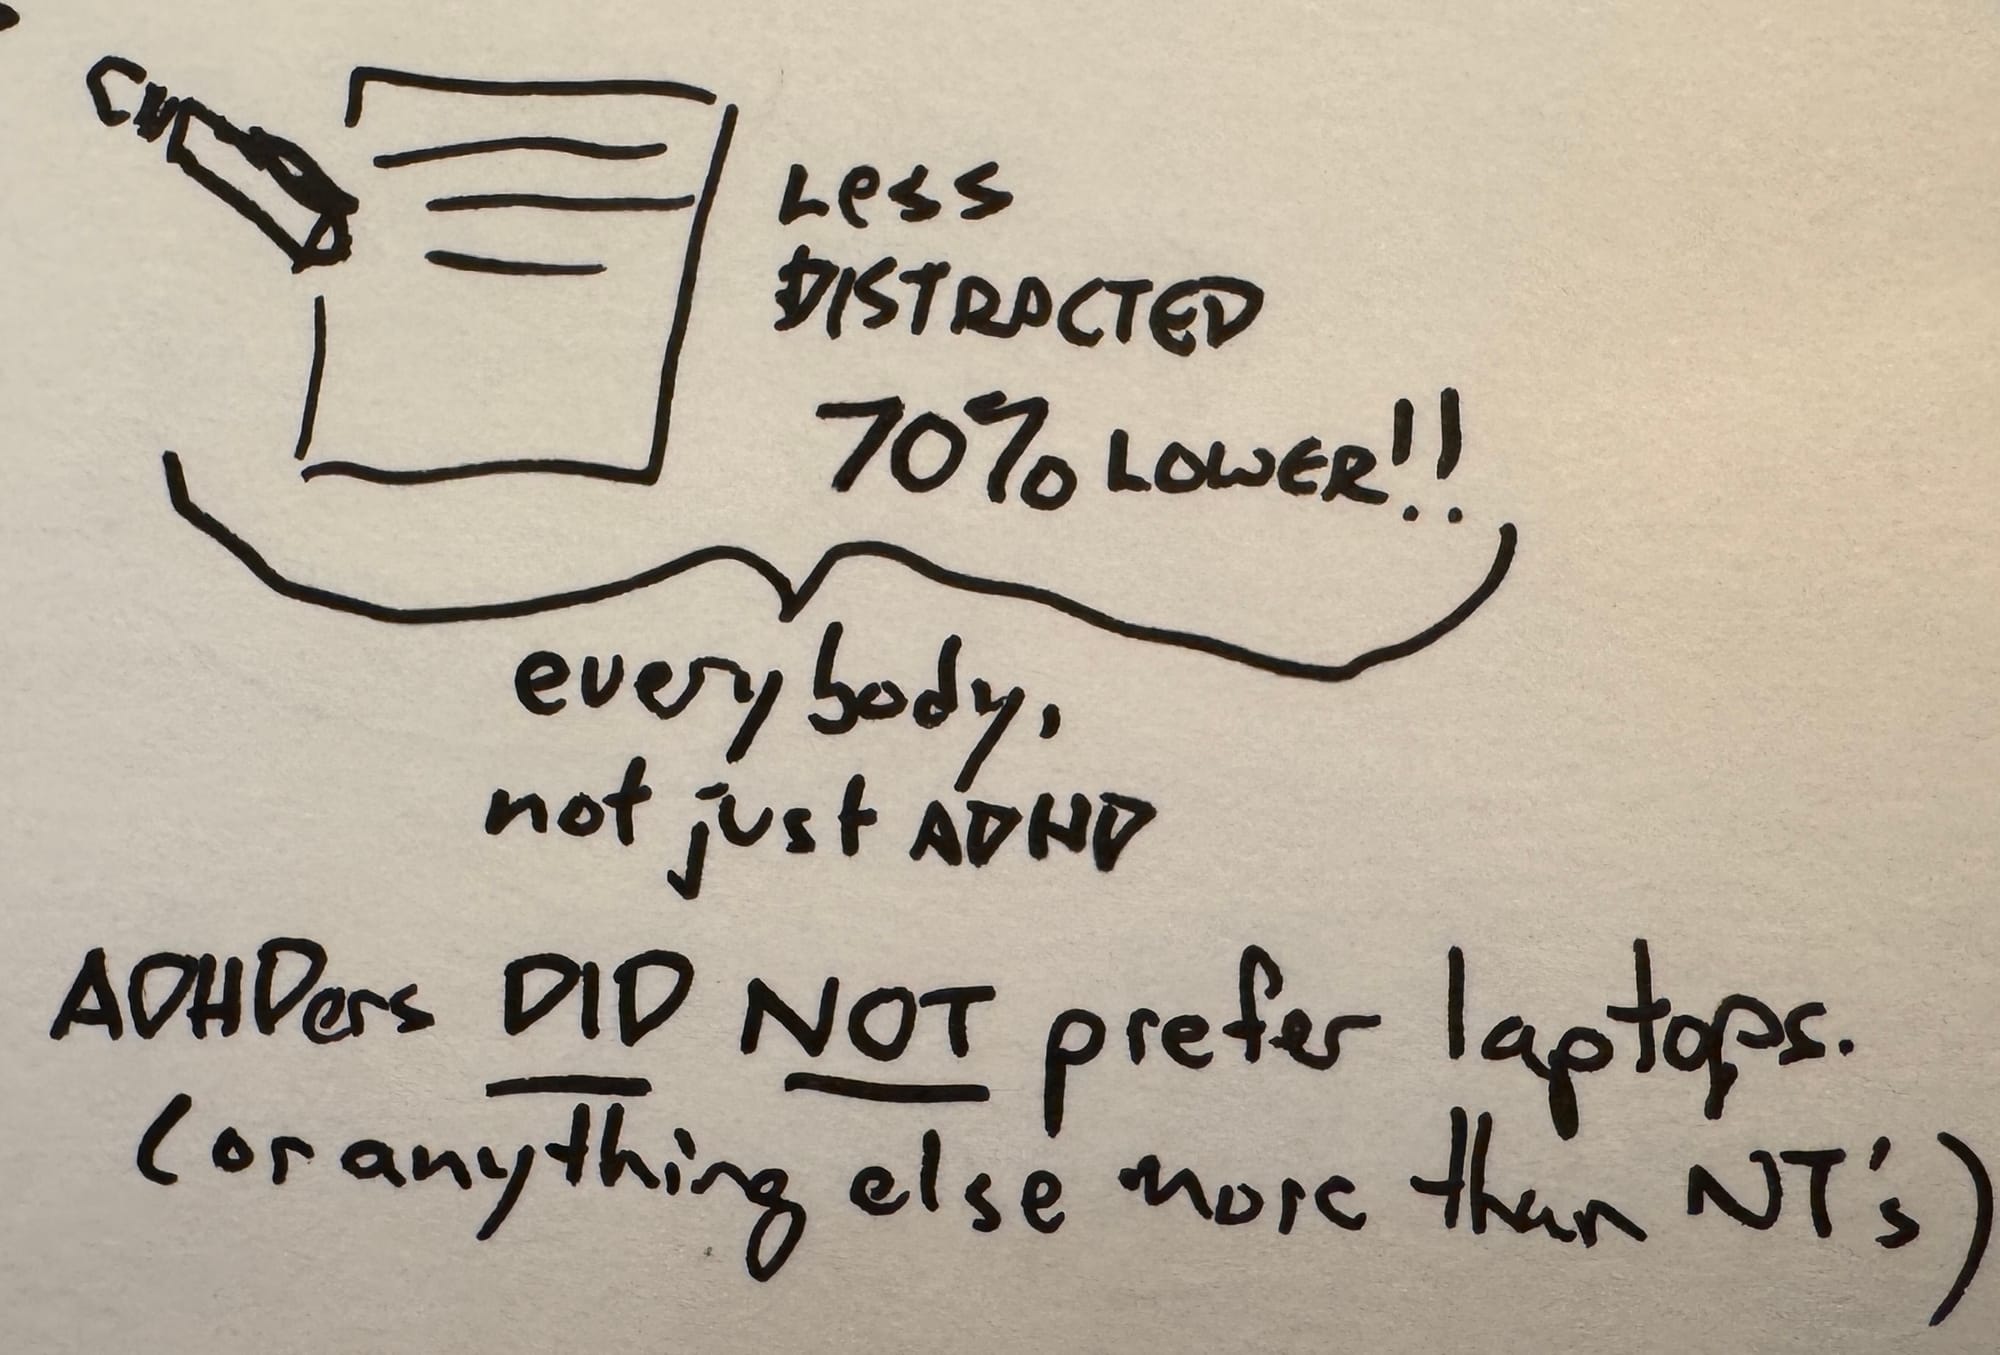 Less
DISTRACTED
70% LOWER!!
everybody,
not just ADHD
ADHDers DID NOT prefer laptops.
(or anything else more than NT's)